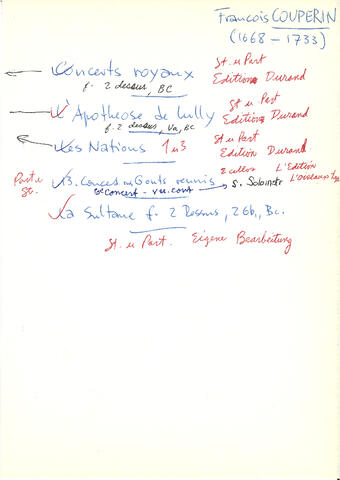 François COUPERIN
(1668 - 1733)
Concerts royaux St. u Part
f. 2 dessus, BC Edition Durand
L'Apothéose de Lully St u Part
f. 2 dessus, Va, BC Edition Durand
Les Nations 1 u 3 St u Part
Edition Durand
Part. u 13. Concert Gouts reunis 2 celli L'Edition
St. Concert - → s. Soloinstr L'Oiseau
La Sultane f. 2 Dessus, 2 Gb., Bc.
St. u Part. Eigene Bearbeitung